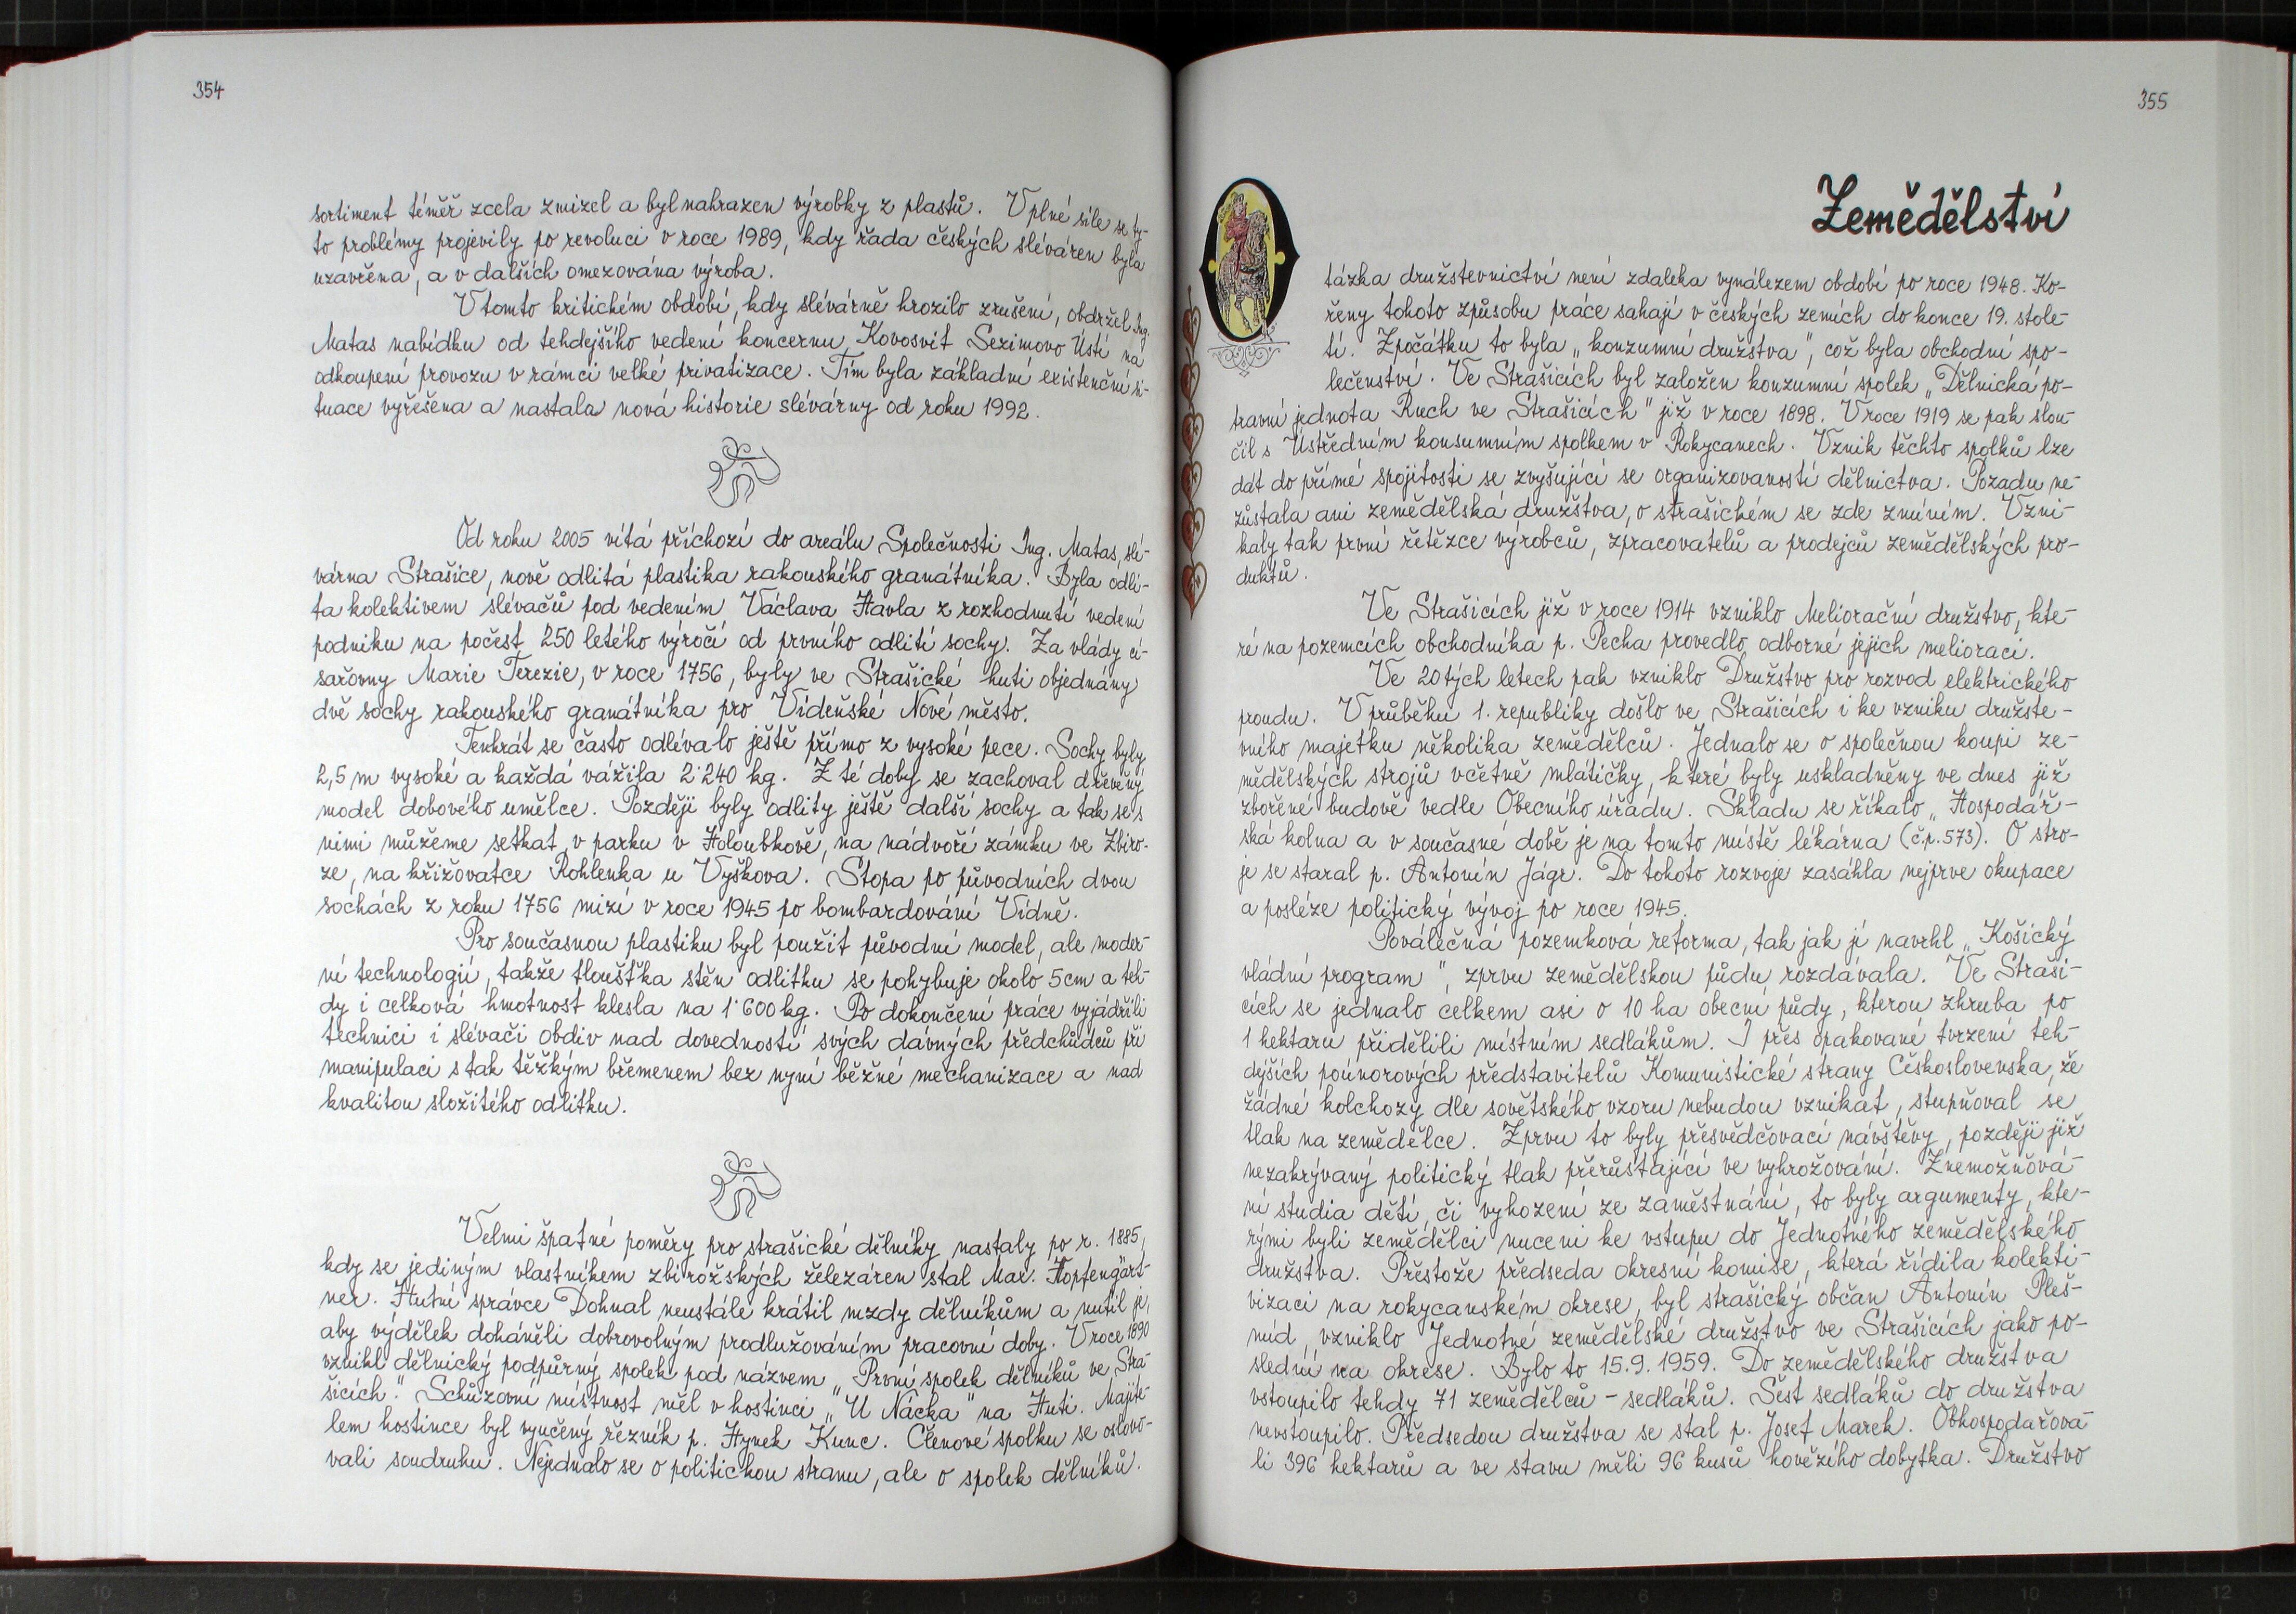 354
sortiment téměř zcela zmizel a byl nahrazen výrobky z plastů. V plné síle se ty-
to problémy projevily po revoluci v roce 1989, kdy řada českých sléváren byla
uzavřena, a v dalších omezována výroba.
V tomto kritichém období, kdy slévárně hrozilo zrušení, obdržel Ing.
Matas nabídku od tehdejšího vedení koncernu Kovosvit Sezimovo Ústí na
odkoupení provozu v rámci velké privatizace. Tím byla základní existenční si-
tuace vyřešena a nastala nová historie slévárny od roku 1992.
Od roku 2005 vítá příchozí do areálu Společnosti Ing. Matas, slé-
várna Strašice, nově odlitá plastika rakouského granátníka. Byla odli-
ta kolektivem slévačů pod vedením Václava Havla z rozhodnutí vedení
podniku na počest 250 letého výročí od prvního odlití sochy. Za vlády cí-
sařovny Marie Terezie, v roce 1756, byly ve Strašické huti objednány
dvě sochy rakouského granátníka pro Vídeňské Nové město.
Tenkrát se často odlévalo ještě přímo z vysoké pece. Sochy byly
2,5 m vysoké a každá vážila 2˙240 kg. Z té doby se zachoval dřevěný
model dobového umělce. Později byly odlity ještě další sochy a tak se s
nimi můžeme setkat v parku v Holoubkově, na nádvoří zámku ve Zbiro-
ze, na křižovatce Rohlenka u Vyškova. Stopa po původních dvou
sochách z roku 1756 mizí v roce 1945 po bombardování Vídně.
Pro současnou plastiku byl použit původní model, ale moder-
ní technologií, takže tloušťka stěn odlitku se pohybuje okolo 5cm a teh-
dy i celková hmotnost klesla na 1˙600 kg. Po dokončení práce vyjádřili
technici i slévači obdiv nad dovedností svých dávných předchůdců při
manipulaci s tak těžkým břemenem bez nyní běžné mechanizace a nad
kvalitou složitého odlitku.
Velmi špatné poměry pro strašické dělníky nastaly po r. 1885,
kdy se jediným vlastníkem zbirožských železáren stal Max. Hopfengärt-
ner. Hutní správce Dohnal neustále krátil mzdy dělníkům a nutil je,
aby výdělek doháněli dobrovolným prodlužováním pracovní doby. V roce 1890
vznikl dělnický podpůrný spolek pod názvem „První spolek dělníků ve Stra-
šicích". Schůzovní místnost měl v hostinci „U Nácka" na Huti. Majite-
lem hostince byl vyučený řezník p. Hynek Kunc. Členové spolku se oslovo-
vali soudruhu. Nejednalo se o politickou stranu, ale o spolek dělníků.
355
Zemědělství
Otázka družstevnictví není zdaleka vynálezem období po roce 1948. Ko-
řeny tohoto způsobu práce sahají v českých zemích do konce 19. stole-
tí. Zpočátku to byla „konzumní družstva", což byla obchodní spo-
lečenství. Ve Strašicích byl založen konzumní spolek „Dělnická po-
travní jednota Ruch ve Strašicích" již v roce 1898. V roce 1919 se pak slou-
čil s Ústředním konsumním spolkem v Rokycanech. Vznik těchto spolků lze
dát do přímé spojitosti se zvyšující se organizovaností dělnictva. Pozadu ne-
zůstala ani zemědělská družstva, o strašickém se zde zmíním. Vzni-
kaly tak první řetězce výrobců, zpracovatelů a prodejců zemědělských pro-
duktů.
Ve Strašicích již v roce 1914 vzniklo Meliorační družstvo, kte-
ré na pozemcích obchodníka p. Pecha provedlo odborné jejich melioraci.
Ve 20tých letech pak vzniklo Družstvo pro rozvod elektrického
proudu. V průběhu 1. republiky došlo ve Strašicích i ke vzniku družste-
vního majetku několika zemědělců. Jednalo se o společnou koupi ze-
mědělských strojů včetně mlátičky, které byly uskladněny ve dnes již
zbořené budově vedle Obecního úřadu. Skladu se říkalo „Hospodář-
ská kolna a v současné době je na tomto místě lékárna (č.p. 573). O stro-
je se staral p. Antonín Jágr. Do tohoto rozvoje zasáhla nejprve okupace
a posléze politický vývoj po roce 1945.
Poválečná pozemková reforma, tak jak jí navrhl „Košický
vládní program", zprvu zemědělskou půdu rozdávala. Ve Straši-
cích se jednalo celkem asi o 10 ha obecní půdy, kterou zhruba po
1 hektaru přidělili místním sedlákům. I přes opakované tvrzení teh-
dyších poúnorových představitelů Komunistické strany Československa, že
žádné kolchozy dle sovětského vzoru nebudou vznikat, stupňoval se
tlak na zemědělce. Zprvu to byly přesvědčovací návštěvy, později již
nezakrývaný politický tlak přerůstající ve vyhrožování. Znemožňová-
ní studia dětí, či vyhození ze zaměstnání, to byly argumenty, kte-
rými byli zemědělci nuceni ke vstupu do Jednotného zemědělského
družstva. Přestože předseda okresní komise, která řídila kolekti-
vizaci na rokycanském okrese, byl strašický občan Antonín Pleš-
míd, vzniklo Jednotné zemědělské družstvo ve Strašicích jako po-
slední na okrese. Bylo to 15.9.1959. Do zemědělského družstva
vstoupilo tehdy 71 zemědělců - sedláků. Šest sedláků do družstva
nevstoupilo. Předsedou družstva se stal p. Josef Marek. Obhospodařova-
li 396 hektarů a ve stavu měli 96 kusů hovězího dobytka. Družstvo